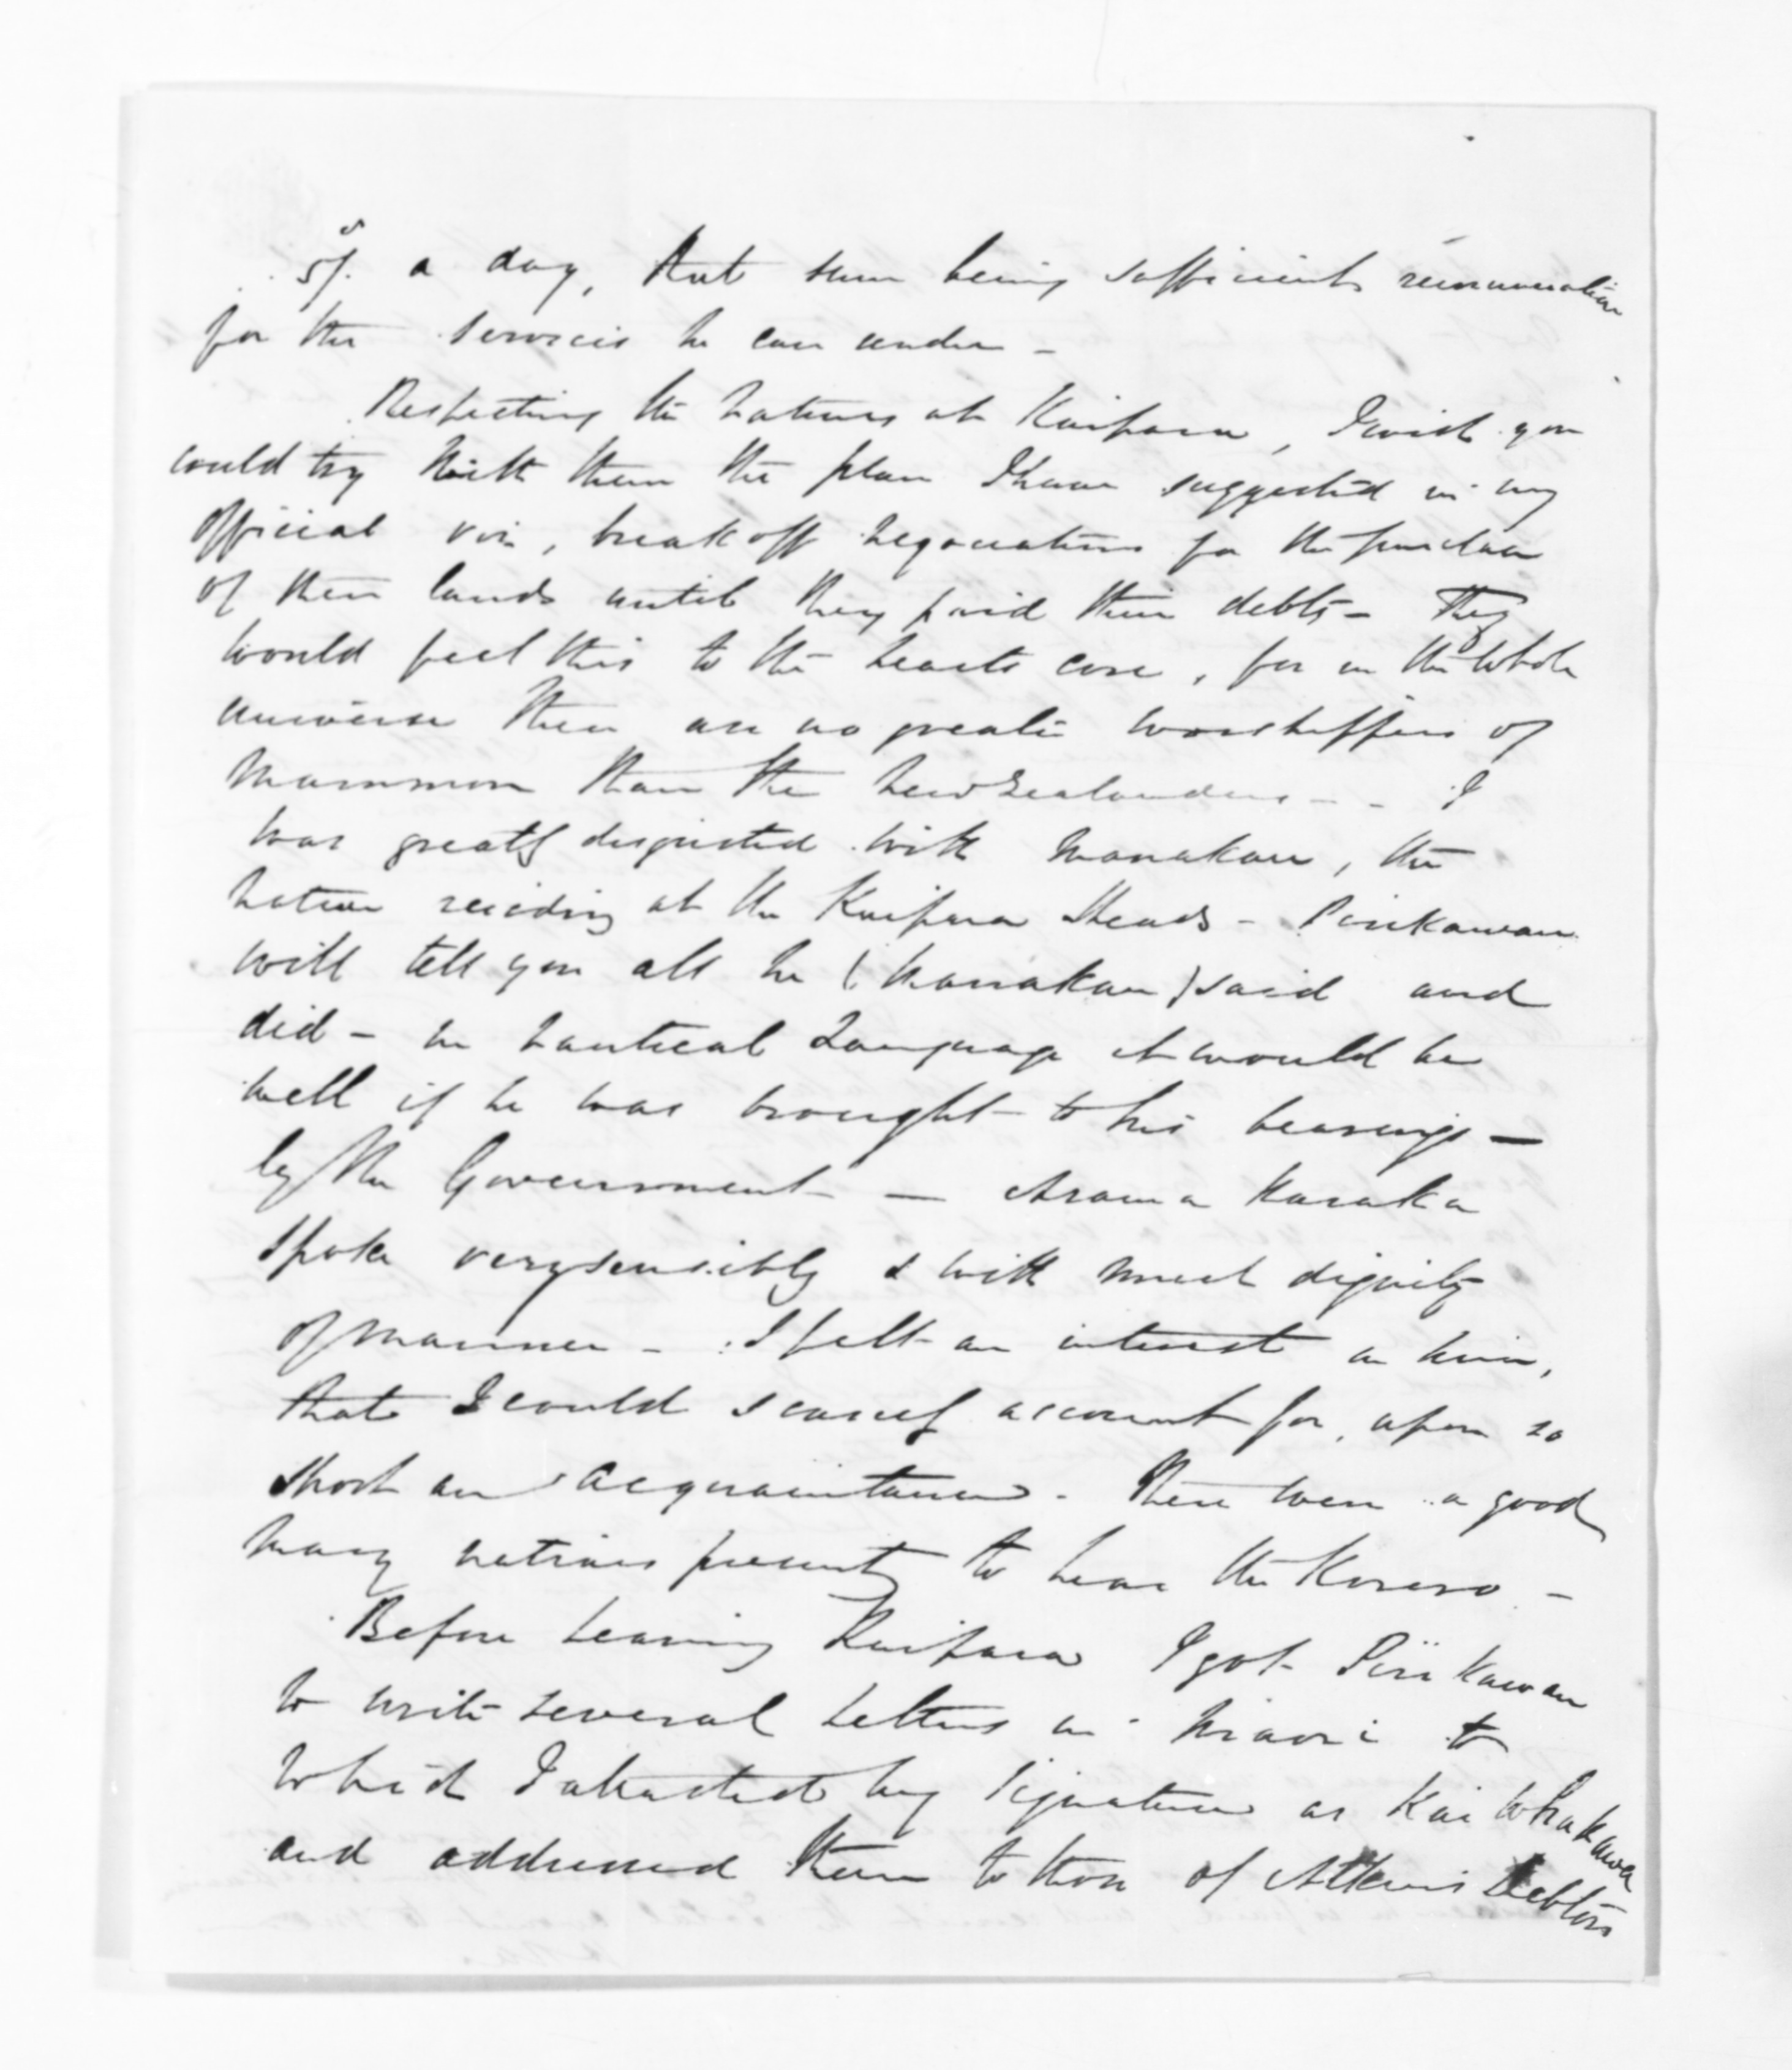 5/. a day, that sum being sufficient remuneration
for the services he can render -
Respecting the Natives at Kaipara, I wish you
could try with them the plan I have suggested in my
official viz, break off negociations for the purchase
of their lands until they paid their debts - They
would feel this to the hearts core, for in the whole
universe there are no greater worshippers of
Mammon than the New Zealanders - - I
was greatly disgusted with Manakau, the
Native residing at the Kaipara Heads - Pirikawau
will tell you all he (Manakau) said and
did - in Nautical Language it would be
well if he was brought to his bearings -
by the Government - Arama Karaka
spoke very sensibly & with much dignity
of manner - I felt an interest in him,
that I could scarcely account for, upon so
short an acquaintance. There were a good
many natives present to hear the Korero -
Before leaving Kaipara I got Pirikawau
to write several Letters in Maori to
which I attached my signature as Kai Whakawa
and addressed them to those of Atkins Debtors